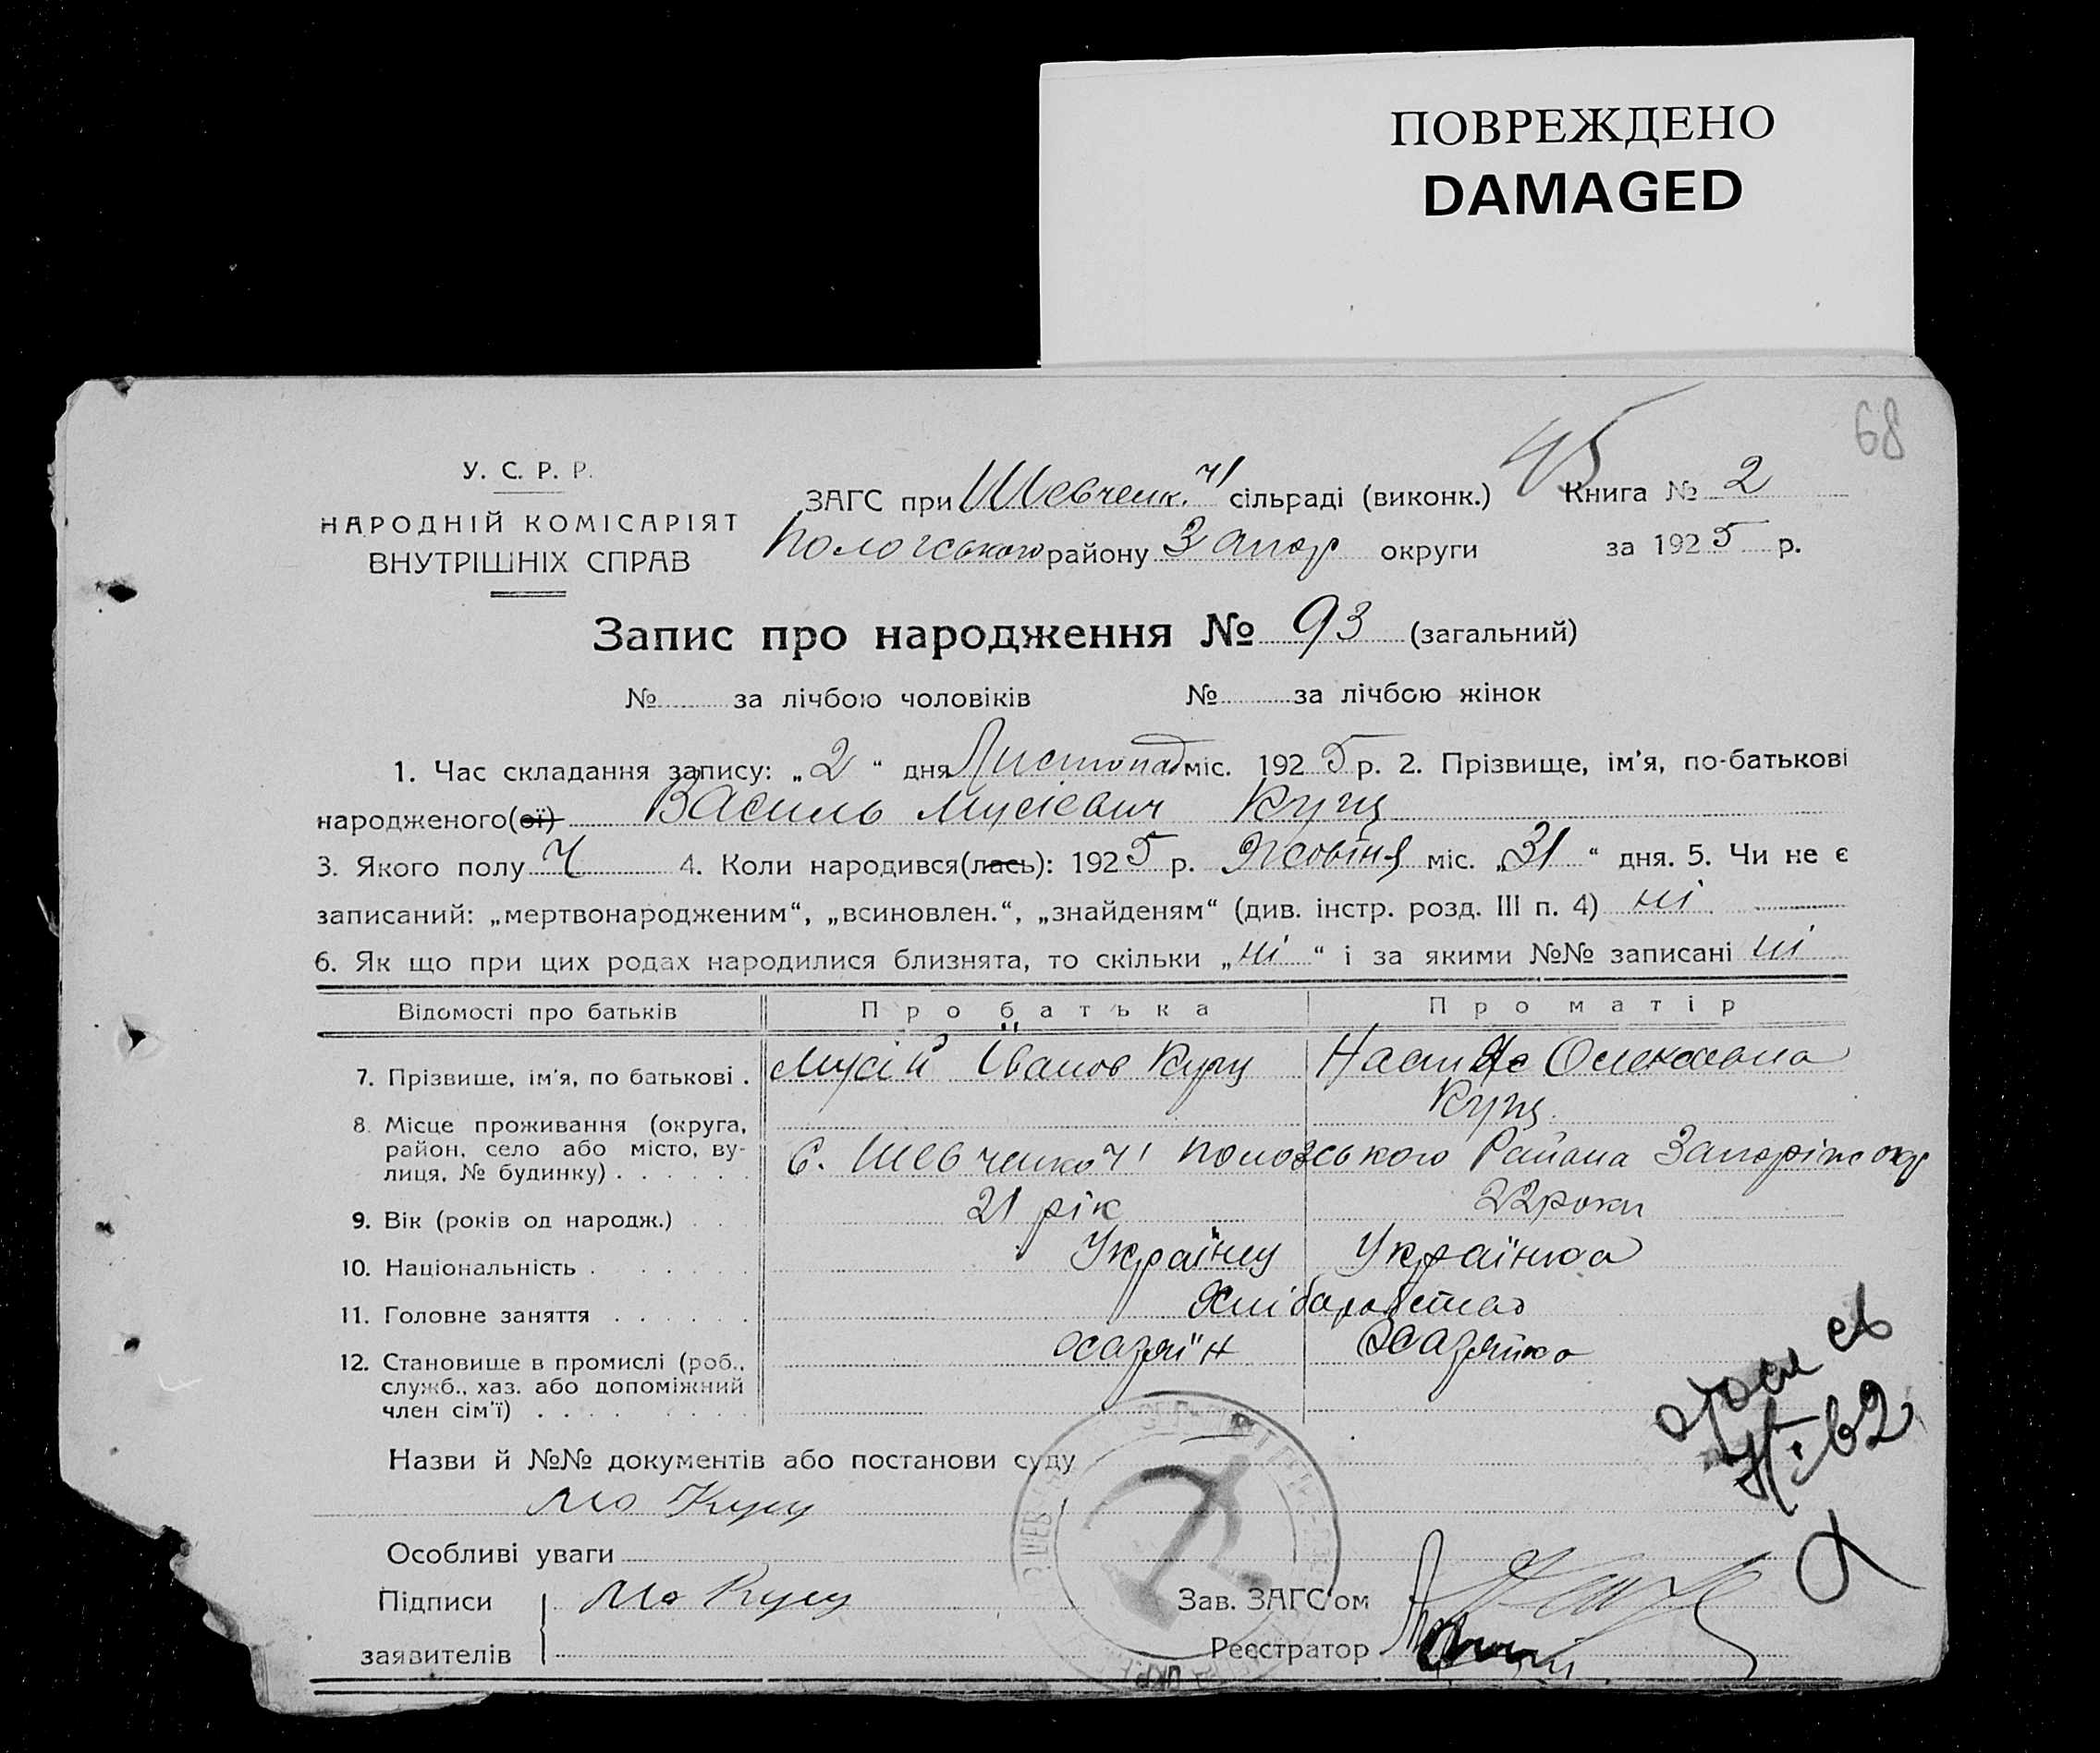 ПОВРЕЖДЕНО
DAMAGED
68
45
У. С. Р. Р.
НАРОДНІЙ КОМІСАРІЯТ
ВНУТРІШНІХ СПРАВ
ЗАГС при Шевченк. №1 сільраді (виконк.) Книга № 2
Пологського району Запор округи за 1925 р.
Запис про народження № 93 (загальний)
№ за лічбою чоловіків № за лічбою жінок
1. Час складання запису: „2“ дня Листопад міс. 1925 р. 2. Прізвище, ім'я, по-батькові
народженого(ої) Василь Мусієвич Куц
3. Якого полу Ч 4. Коли народився(лась): 1925 р. Жовтня міс. „31“ дня. 5. Чи не є
записаний: „мертвонародженим“, „всиновлен.“, „знайденям“ (див. інстр. розд. III п. 4) ні
6. Як що при цих родах народилися близнята, то скільки „ні“ і за якими №№ записані ні
Відомості про батьків Про батька Про матір
7. Прізвище, ім'я, по батькові . Мусій Іванов Куц Настя Олексієвна
Куц
8. Місце проживання (округа,
район, село або місто, ву-
лиця, № будинку) . . . . . . С. Шевченко №1 Пологського Района Запоріж окр
9. Вік (років од народж.) . . 21 рік 22 роки
10. Національність . . . . . . Українец Українка
11. Головне заняття . . . . . . Хліборобство
12. Становище в промислі (роб.,
служб., хаз. або допоміжний
член сім'ї) . . . . . . . . хазяїн хазяйка
Назви й №№ документів або постанови суду
Мо Куц
Особливі уваги
Підписи Мо Куц Зав. ЗАГС'ом
заявителів Реєстратор
УКР